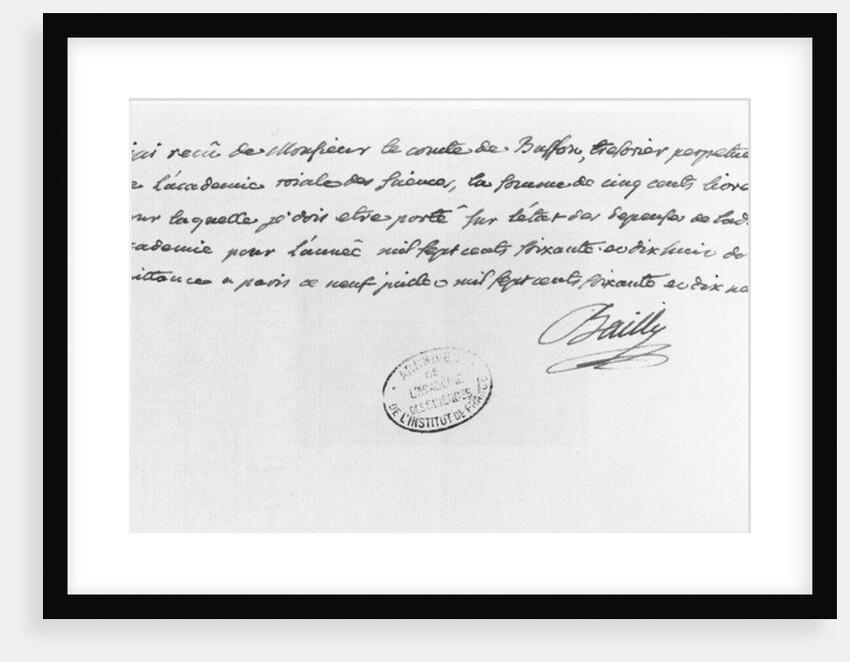 j'ai recû de Monsieur le comte de Buffon, tresorier perpetue
e l'académie roiale des sciences, la somme de cinq cents livre
our laquelle je dois etre porté sur l'état des depenses de lad.
cadémie pour l'année mil sept cents soixante et dix huit do
ittance a paris ce neuf juillet mil sept cents soixante et dix ne
Bailly
ARCHIVES
DE
L'ACADÉMIE
DES SCIENCES
DE L'INSTITUT DE FRANCE